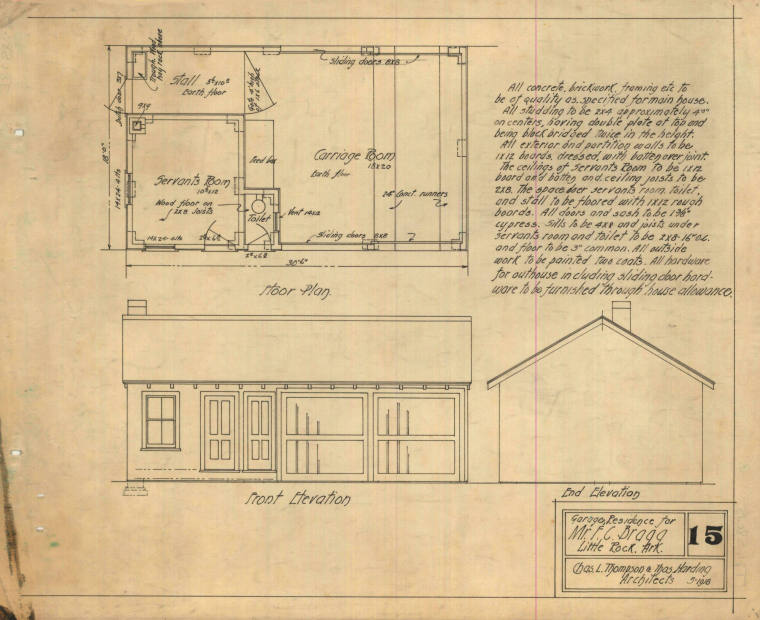 Sliding doors 8x8
Stall 5⁶x10⁶
Earth floor
9x9
Feed box
Carriage Room
18x20
Earth floor
Servants Room
10⁶x12
Wood floor on
2x8 Joists
Toilet
Vent 14x12
24" Conct. runners
14x24-4 lts
14x24-4 lts
2⁸x6⁸
2⁶x6⁸
Sliding doors 8x8
18'-6"
30'-6"
Floor Plan.
All concrete, brickwork, framing etc to
be of quality as specified for main house.
All studding to be 2x4 approximately 4'0"
on centers, having double plate at top and
being block bridged twice in the height.
All exterior and partition walls to be
1x12 boards, dressed, with batten over joint.
The ceilings of Servants Room to be 1x12
board and batten and ceiling joists to be
2x8. The space over servants room, toilet,
and stall to be floored with 1x12 rough
boards. All doors and sash to be 1⅜"
cypress. Sills to be 4x8 and joists under
servants room and toilet to be 2x8-16"o.c.
and floor to be 3" common. All outside
work to be painted two coats. All hardware
for outhouse including sliding door hard-
ware to be furnished through house allowance.
Front Elevation
End Elevation
Garage, Residence for
Mr. F. C. Bragg
Little Rock, Ark.
15
Chas. L. Thompson & Thos. Harding
Architects